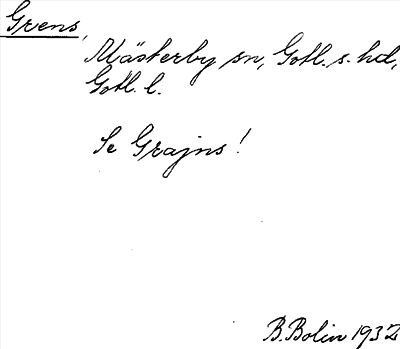 Grens,
Mästerby sn, Gotl. s. hd,
Gotl. l.
Se Grajns!
B. Bolin 1932